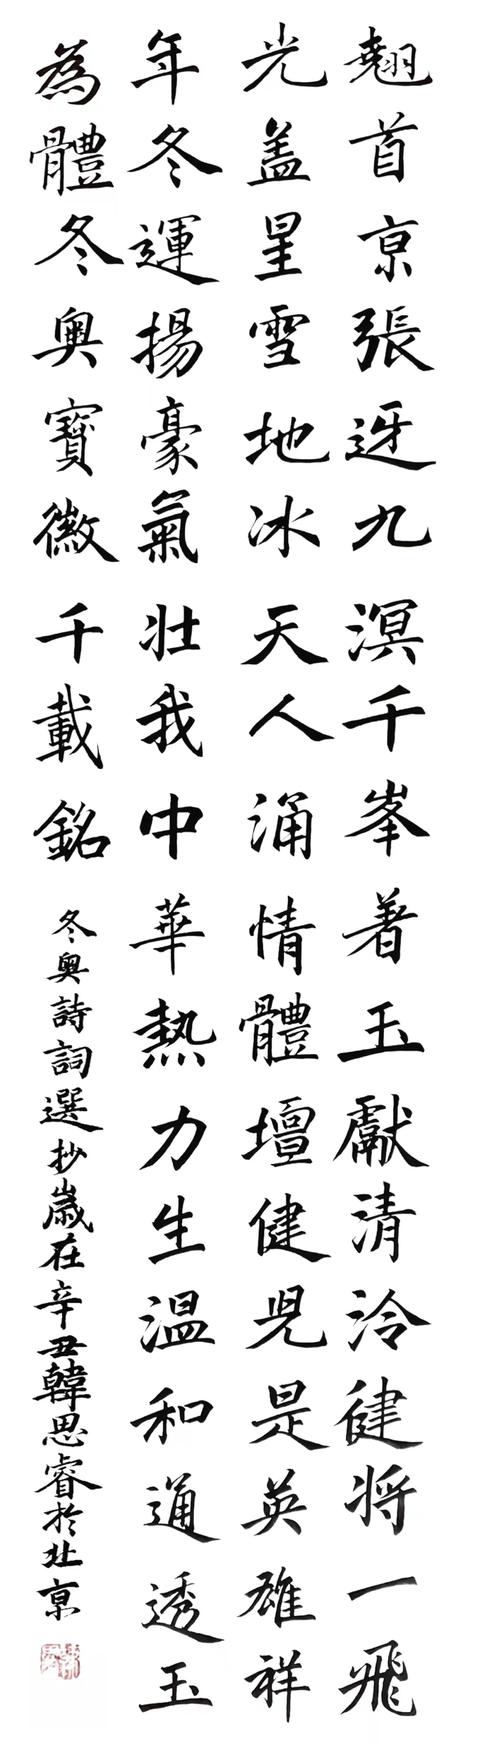 翹首京張迓九溟千峯着玉獻清泠健將一飛
光盖星雪地冰天人涌情體壇健児是英雄祥
年冬運揚豪氣壯我中華熱力生温和通透玉
為體冬奥寶徽千載銘
冬奥詩詞選抄歲在辛丑韓思睿於北京